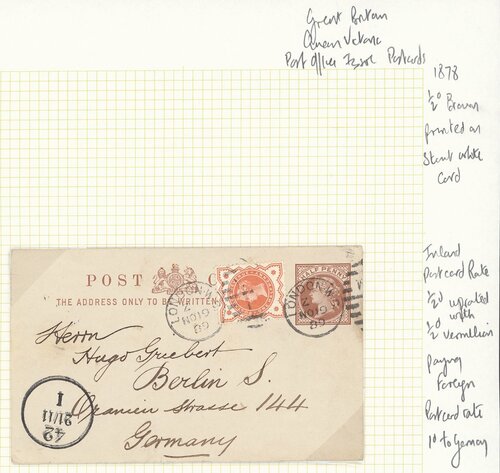 Great Britain
Queen Victoria
Post Office Issue Postcards
1878
½d Brown
printed on
Stout white
card
Inland
Postcard Rate
½d uprated
with
½d vermillion
paying
Foreign
Postcard rate
1d to Germany
POST C
THE ADDRESS ONLY TO BE WRITTEN
HALF PENNY
LONDON·W.C
LONDON·W.C
Herrn
Hugo Griebert
Berlin S.
Oranien strasse 144
Germany
42
21/11
1